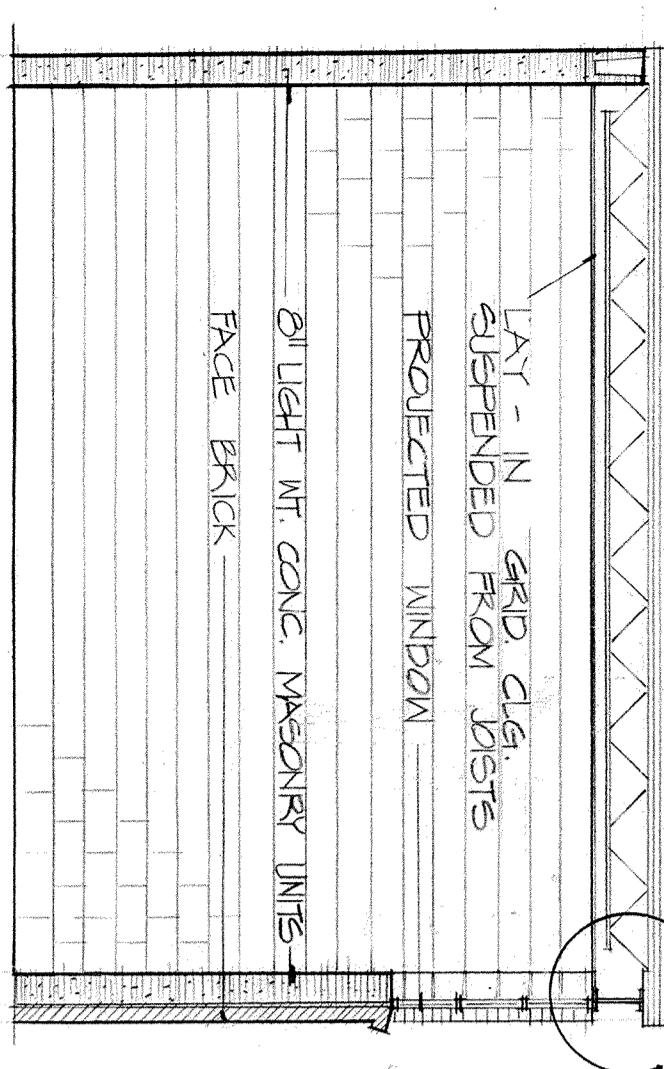 LAY - IN GRID. CLG.
SUSPENDED FROM JOISTS
PROJECTED WINDOW
8" LIGHT WT. CONC. MASONRY UNITS
FACE BRICK